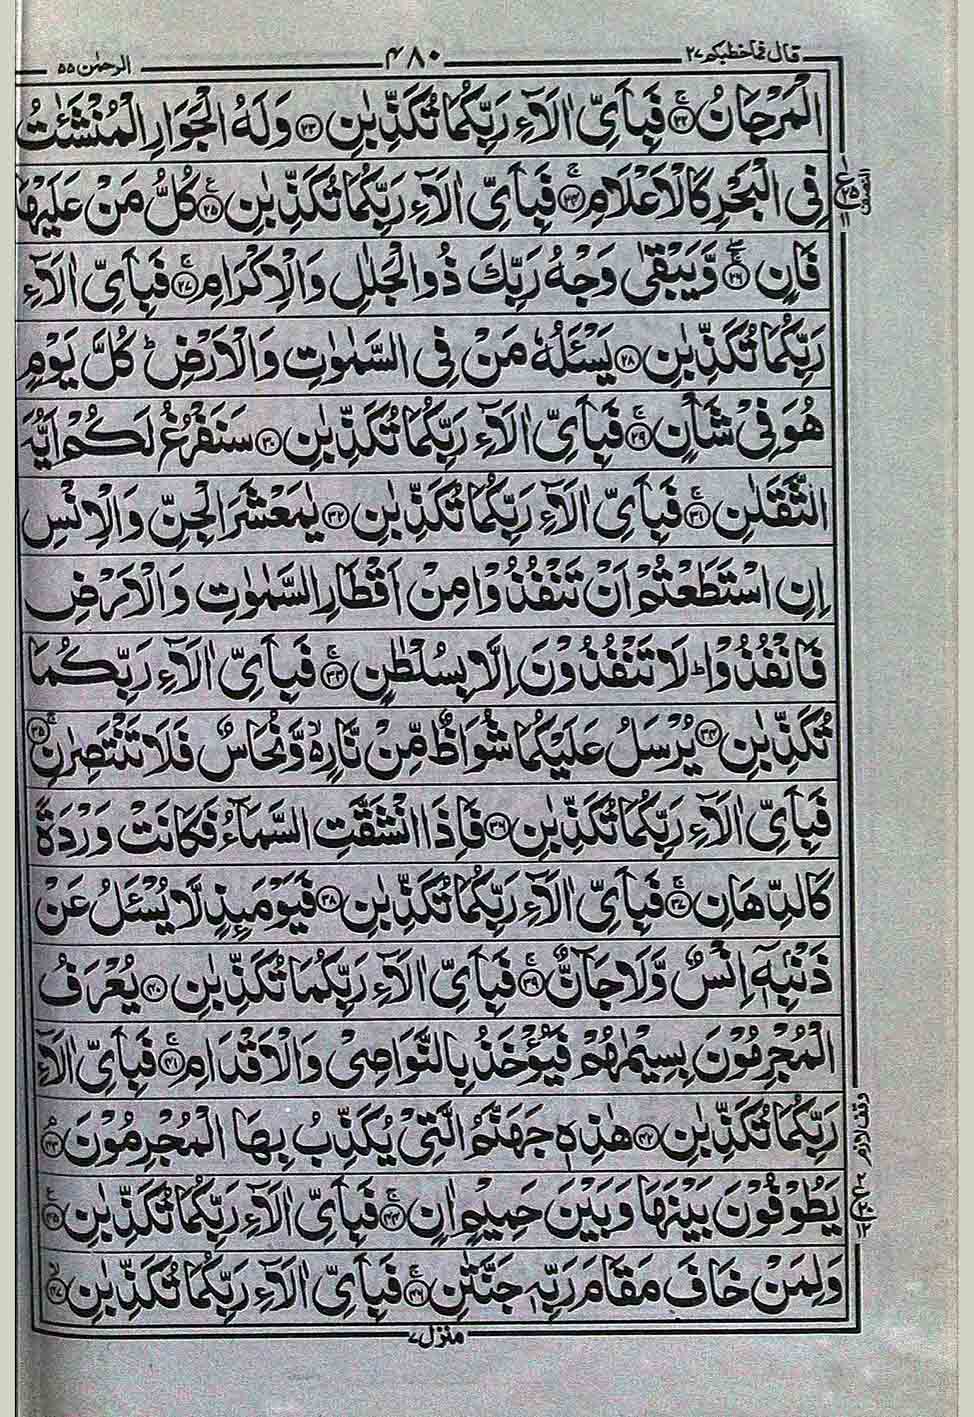 قال فما خطبكم ٢٧
۴٨٠
الرحمٰن ٥٥
الْمَرْجَانُ ﴿٢٢﴾ فَبِاَيِّ اٰلَآءِ رَبِّكُمَا تُكَذِّبٰنِ ﴿٢٣﴾ وَلَهُ الْجَوَارِ الْمُنْشَئٰتُ
فِى الْبَحْرِ كَالْاَعْلَامِ ﴿٢۴﴾ فَبِاَيِّ اٰلَآءِ رَبِّكُمَا تُكَذِّبٰنِ ﴿٢٥﴾ كُلُّ مَنْ عَلَيْهَا
فَانٍ ﴿٢٦﴾ وَّيَبْقٰى وَجْهُ رَبِّكَ ذُو الْجَلٰلِ وَالْاِكْرَامِ ﴿٢٧﴾ فَبِاَيِّ اٰلَآءِ
رَبِّكُمَا تُكَذِّبٰنِ ﴿٢٨﴾ يَسْـَٔلُهٗ مَنْ فِى السَّمٰوٰتِ وَالْاَرْضِ ؕ كُلَّ يَوْمٍ
هُوَ فِيْ شَاْنٍ ﴿٢٩﴾ فَبِاَيِّ اٰلَآءِ رَبِّكُمَا تُكَذِّبٰنِ ﴿٣٠﴾ سَنَفْرُغُ لَكُمْ اَيُّهَ
الثَّقَلٰنِ ﴿٣١﴾ فَبِاَيِّ اٰلَآءِ رَبِّكُمَا تُكَذِّبٰنِ ﴿٣٢﴾ يٰمَعْشَرَ الْجِنِّ وَالْاِنْسِ
اِنِ اسْتَطَعْتُمْ اَنْ تَنْفُذُوْا مِنْ اَقْطَارِ السَّمٰوٰتِ وَالْاَرْضِ
فَانْفُذُوْا ؕ لَا تَنْفُذُوْنَ اِلَّا بِسُلْطٰنٍ ﴿٣٣﴾ فَبِاَيِّ اٰلَآءِ رَبِّكُمَا
تُكَذِّبٰنِ ﴿٣۴﴾ يُرْسَلُ عَلَيْكُمَا شُوَاظٌ مِّنْ نَّارٍ ۙ وَّنُحَاسٌ فَلَا تَنْتَصِرٰنِ ﴿٣٥﴾
فَبِاَيِّ اٰلَآءِ رَبِّكُمَا تُكَذِّبٰنِ ﴿٣٦﴾ فَاِذَا انْشَقَّتِ السَّمَآءُ فَكَانَتْ وَرْدَةً
كَالدِّهَانِ ﴿٣٧﴾ فَبِاَيِّ اٰلَآءِ رَبِّكُمَا تُكَذِّبٰنِ ﴿٣٨﴾ فَيَوْمَئِذٍ لَّا يُسْـَٔلُ عَنْ
ذَنْۢبِهٖۤ اِنْسٌ وَّلَا جَآنٌّ ﴿٣٩﴾ فَبِاَيِّ اٰلَآءِ رَبِّكُمَا تُكَذِّبٰنِ ﴿۴٠﴾ يُعْرَفُ
الْمُجْرِمُوْنَ بِسِيْمٰهُمْ فَيُؤْخَذُ بِالنَّوَاصِيْ وَالْاَقْدَامِ ﴿۴١﴾ فَبِاَيِّ اٰلَآءِ
رَبِّكُمَا تُكَذِّبٰنِ ﴿۴٢﴾ هٰذِهٖ جَهَنَّمُ الَّتِيْ يُكَذِّبُ بِهَا الْمُجْرِمُوْنَ ﴿۴٣﴾
يَطُوْفُوْنَ بَيْنَهَا وَبَيْنَ حَمِيْمٍ اٰنٍ ﴿۴۴﴾ فَبِاَيِّ اٰلَآءِ رَبِّكُمَا تُكَذِّبٰنِ ﴿۴٥﴾
وَلِمَنْ خَافَ مَقَامَ رَبِّهٖ جَنَّتٰنِ ﴿۴٦﴾ فَبِاَيِّ اٰلَآءِ رَبِّكُمَا تُكَذِّبٰنِ ﴿۴٧﴾
منزل ٧
ع ٢٥ ١١
وقف لازم
ع ٢ ٢٠ ١٢